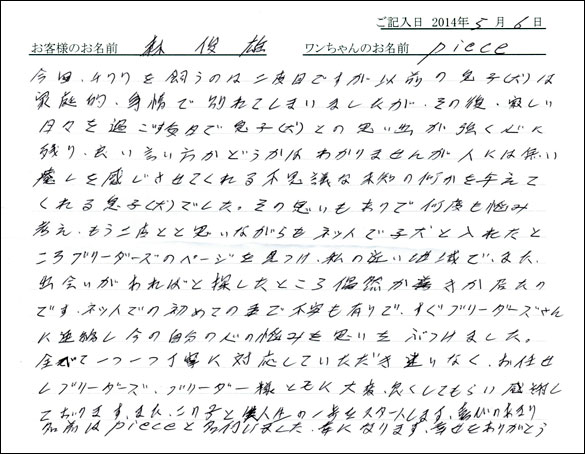 ご記入日 2014年 5月 6日
お客様のお名前 森 俊雄 ワンちゃんのお名前 piece
今回、チワワを飼うのは二度目ですが以前の息子(犬)は
家庭的、事情で別れてしまいましたが、その後、寂しい
日々を過ごす毎日で息子(犬)との思い出が強く心に
残り、良い言い方かどうかはわかりませんが人には無い
癒しを感じさせてくれる不思議な未知の何かを与えて
くれる息子(犬)でした。その思いもありで何度も悩み
考え、もう二度とと思いながらもネットで子犬と入れたと
ころブリーダーズのページを見つけ、私の近い地域で、また、
出会いがあればと探したところ偶然か導きか居たの
です。ネットでの初めての事で不安も有りで、すぐブリーダーズさん
に連絡し今の自分の心の悩みを思いをぶつけました。
全べて一つ一つ丁寧に対応していただき迷いなく、お任せ
しブリーダーズ、ブリーダー様ともに大変、良くしてもらい感謝し
ております。また、この子と人生の一歩をスタートします。
名前はpieceと名付けました。幸になります。幸せをありがとう